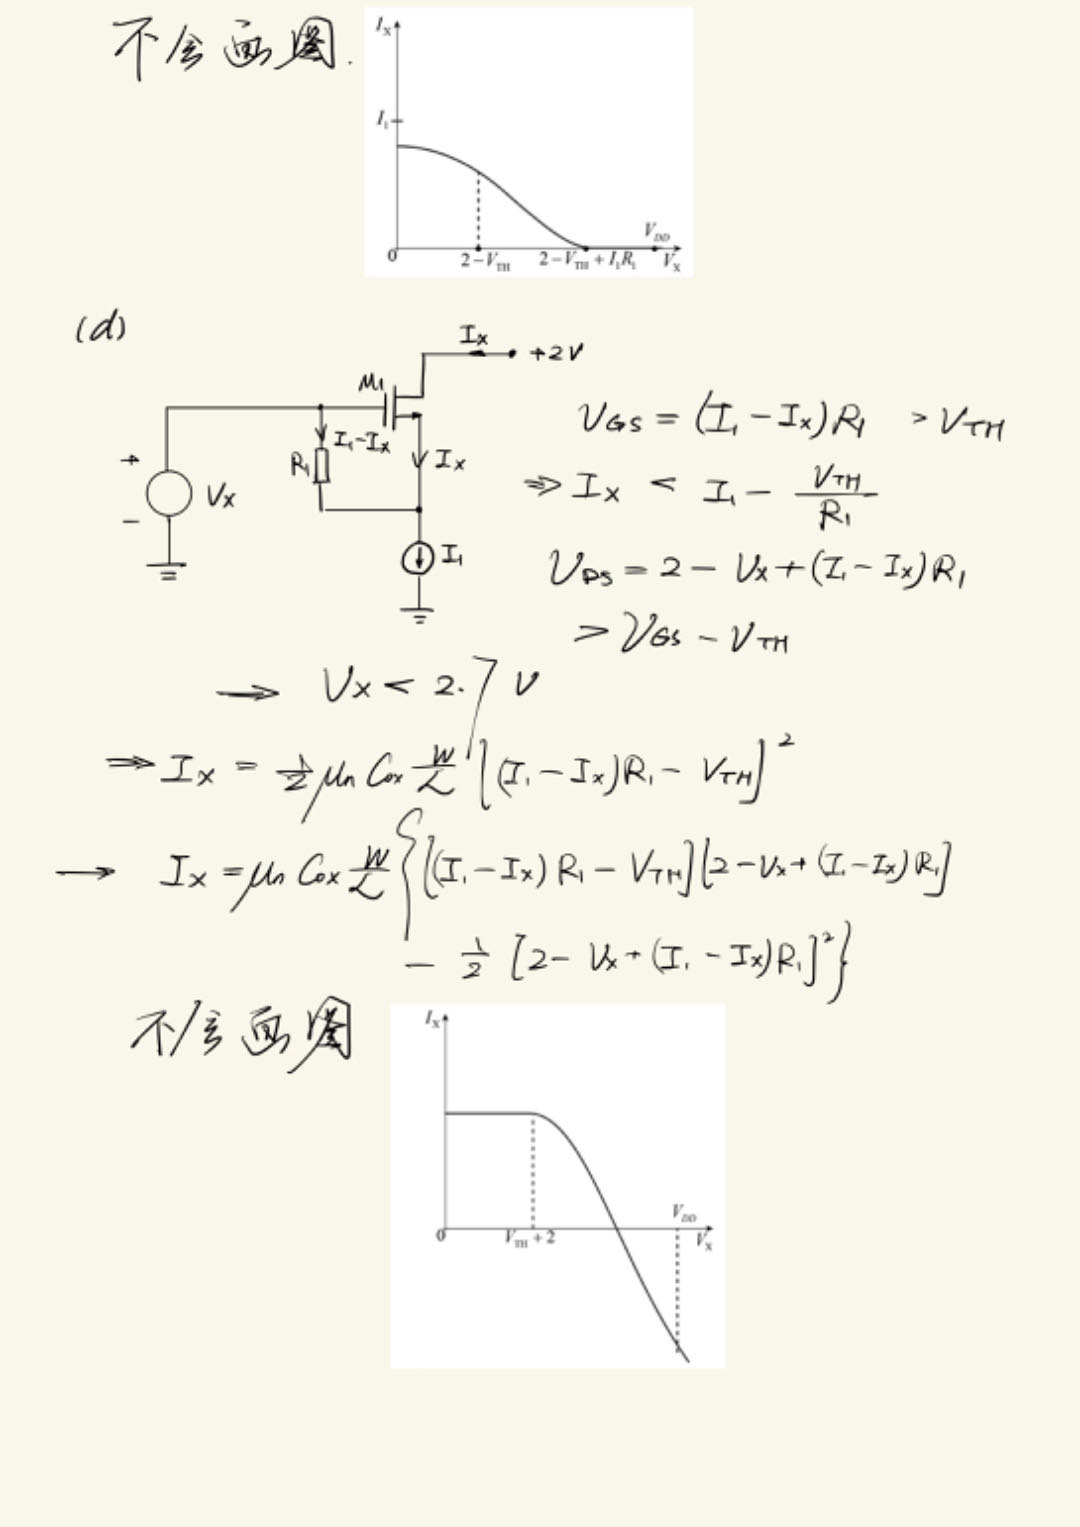 不会画图.
I_X
I_1
0
2-V_TH
2-V_TH+I_1R_1
V_DD
V_X
(d)
I_x
+2V
M_1
+
V_x
-
R_1
I_1-I_x
I_x
I_1
V_GS = (I_1-I_x)R_1 > V_TH
⇒ I_x < I_1 - V_TH/R_1
V_DS = 2 - V_x + (I_1 - I_x)R_1
> V_GS - V_TH
→ V_x < 2.7 V
⇒ I_x = 1/2 μ_n C_ox W/L [(I_1-I_x)R_1 - V_TH]^2
→ I_x = μ_n C_ox W/L {[(I_1-I_x)R_1 - V_TH][2-V_x+(I_1-I_x)R_1]
- 1/2 [2-V_x+(I_1-I_x)R_1]^2}
不会画图
I_X
0
V_TH+2
V_DD
V_X